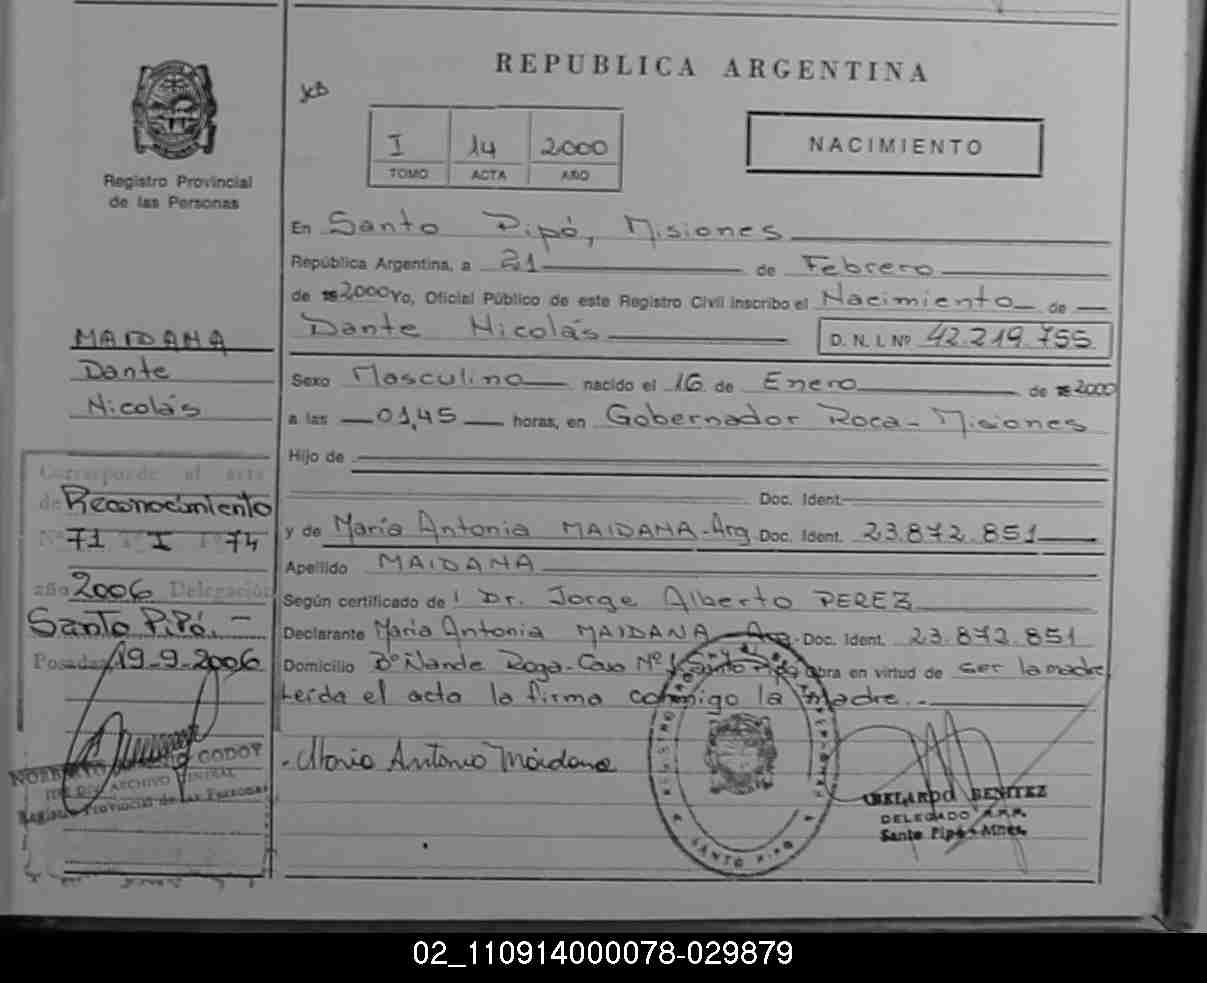 REPUBLICA ARGENTINA
I 14 2000
TOMO ACTA AÑO
NACIMIENTO
Registro Provincial
de las Personas
En Santo Pipó, Misiones
República Argentina, a 21 de Febrero
de 2000 Yo, Oficial Público de este Registro Civil inscribo el Nacimiento de
Dante Nicolás D. N. I. Nº 42.219.755
Sexo Masculino nacido el 16 de Enero de 2000
a las 01,45 horas, en Gobernador Roca - Misiones
Hijo de
Doc. Ident.
y de María Antonia MAIDANA - Arg Doc. Ident. 23.872.851
Apellido MAIDANA
Según certificado de Dr. Jorge Alberto PEREZ
Declarante María Antonia MAIDANA - Arg. Doc. Ident. 23.872.851
Domicilio Bº Ñande Roga - Casa Nº Santo Pipó Obra en virtud de ser la madre
Leída el acta la firma conmigo la madre.-
Maria Antonia Maidana
SANTO PIPO
ABELARDO BENITEZ
DELEGADO R.P.P.
Santo Pipó - Mnes.
MAIDANA
Dante
Nicolás
Corresponde al acta
de Reconocimiento
Nº 71 Tº I Fº 74
año 2006 Delegación
Santo Pipó.-
Posadas, 19-9-2006
NORBERTO GODOY
ARCHIVO GENERAL
Registro Provincial de las Personas
02_110914000078-029879